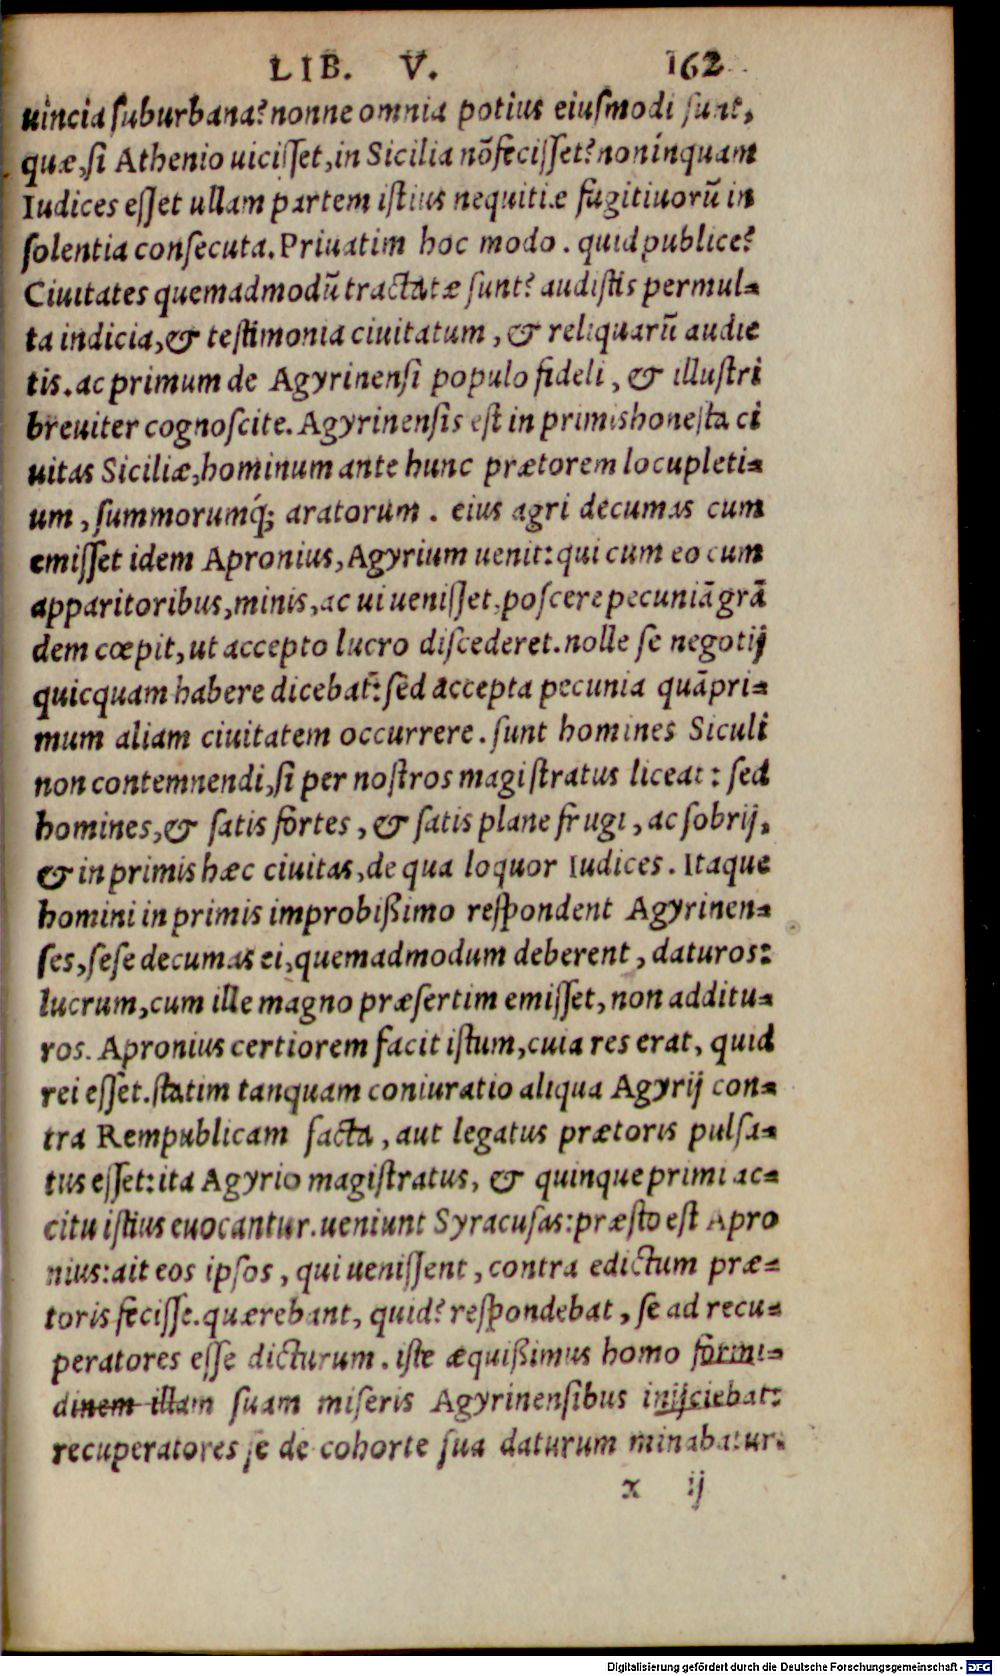 LIB. V. 162
uincia suburbana? nonne omnia potius eiusmodi sunt,
quæ, si Athenio uicisset, in Sicilia nō fecisset? non inquam
Iudices esset ullam partem istius nequitiæ fugitiuorū in
solentia consecuta. Priuatim hoc modo. quid publice?
Ciuitates quemadmodū tractatæ sunt? audistis permul-
ta indicia, & testimonia ciuitatum, & reliquarū audie
tis. ac primum de Agyrinensi populo fideli, & illustri
breuiter cognoscite. Agyrinensis est in primis honesta ci
uitas Siciliæ, hominum ante hunc prætorem locupleti-
um, summorumq́; aratorum. eius agri decumas cum
emisset idem Apronius, Agyrium uenit: qui cum eo cum
apparitoribus, minis, ac ui uenisset, poscere pecuniā grā
dem cœpit, ut accepto lucro discederet. nolle se negotij
quicquam habere dicebat: sed accepta pecunia quā pri-
mum aliam ciuitatem occurrere. sunt homines Siculi
non contemnendi, si per nostros magistratus liceat: sed
homines, & satis fortes, & satis plane frugi, ac sobrij,
& in primis hæc ciuitas, de qua loquor Iudices. Itaque
homini in primis improbißimo respondent Agyrinen-
ses, sese decumas ei, quemadmodum deberent, daturos:
lucrum, cum ille magno præsertim emisset, non additu-
ros. Apronius certiorem facit istum, cuia res erat, quid
rei esset. statim tanquam coniuratio aliqua Agyrij con-
tra Rempublicam facta, aut legatus prætoris pulsa-
tus esset: ita Agyrio magistratus, & quinque primi ac-
citu istius euocantur. ueniunt Syracusas: præsto est Apro
nius: ait eos ipsos, qui uenissent, contra edictum præ-
toris fecisse. quærebant, quid? respondebat, se ad recu-
peratores esse dicturum. iste æquißimus homo formi-
dinem illam suam miseris Agyrinensibus inijciebat:
recuperatores se de cohorte sua daturum minabatur.
x ij
Digitalisierung gefördert durch die Deutsche Forschungsgemeinschaft - DFG